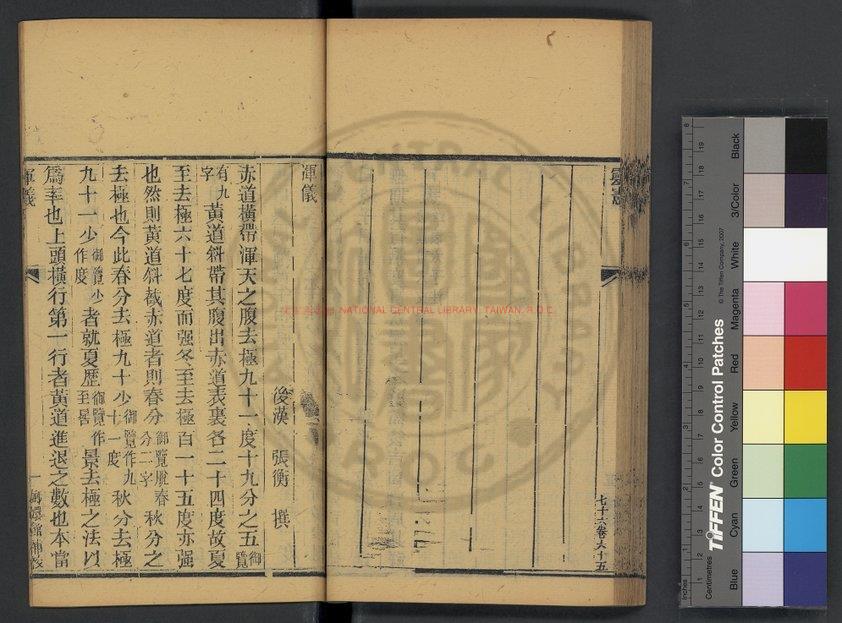 七十六卷六十五
渾儀
後漢 張衡 撰
赤道橫帶渾天之腹去極九十一度十九分之五御覽
有九字黃道斜帶其腹出赤道表裏各二十四度故夏
至去極六十七度而强冬至去極百一十五度亦强
也然則黃道斜截赤道者則春分御覽脫春分二字秋分之
去極也今此春分去極九十少御覽作九十一度秋分去極
九十一少御覽少作度者就夏歷御覽作至晷景去極之法以
爲率也上頭橫行第一行者黃道進退之數也本當
渾儀
NATIONAL CENTRAL LIBRARY, TAIWAN, R.O.C.
CENTRAL LIBRARY
R.O.C.
TIFFEN Color Control Patches
© The Tiffen Company, 2007
Inches
Centimetres
Blue
Cyan
Green
Yellow
Red
Magenta
White
3/Color
Black